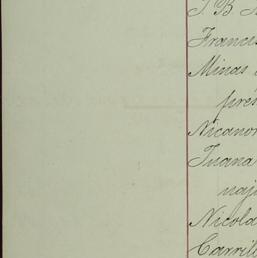 J. B.
Frances
Minas
pres
Nicanor
Juana
naj
Nicola
Carrill